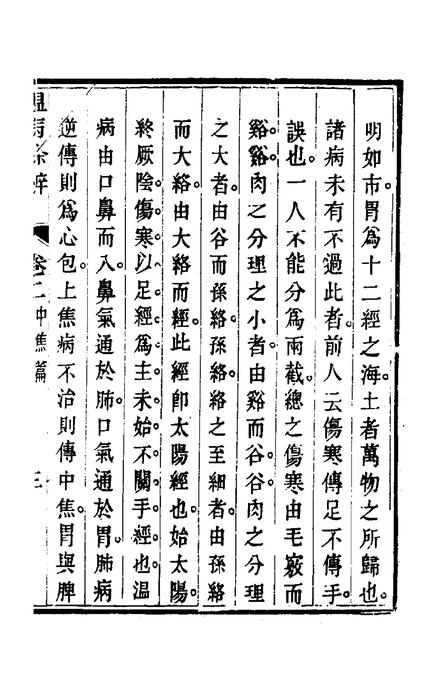 明如市。胃爲十二經之海。土者萬物之所歸也。
諸病未有不過此者。前人云傷寒傳足不傳手。
誤也。一人不能分爲兩截。總之傷寒由毛竅而
谿。谿肉之分理之小者。由谿而谷。谷肉之分理
之大者。由谷而孫絡。孫絡絡之至細者。由孫絡
而大絡。由大絡而經。此經卽太陽經也。始太陽。
終厥陰。傷寒以足經爲主。未始不關手經也。温
病由口鼻而入。鼻氣通於肺。口氣通於胃。肺病
逆傳則爲心包。上焦病不治則傳中焦。胃與脾
温病條辨 卷二中焦篇 三